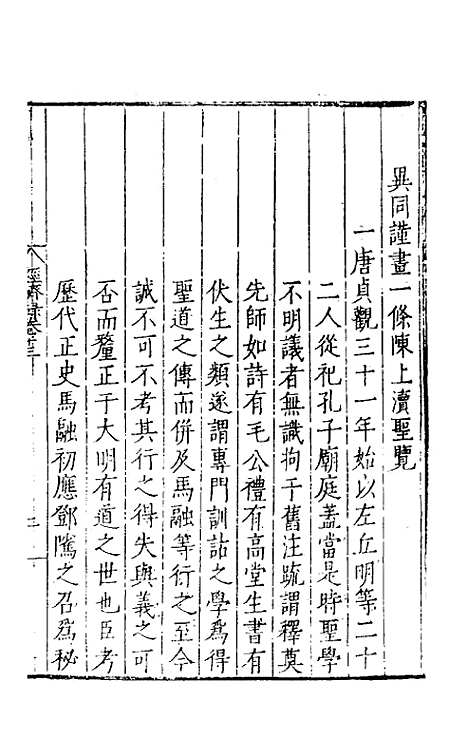 異同謹畫一條陳上瀆聖覽
一唐貞觀三十一年始以左丘明等二十
二人從祀孔子廟庭蓋當是時聖學
不明議者無識拘于舊注疏謂釋奠
先師如詩有毛公禮有高堂生書有
伏生之類遂謂專門訓詁之學爲得
聖道之傳而併及馬融等行之至今
誠不可不考其行之得失與義之可
否而釐正于大明有道之世也臣考
歷代正史馬融初應鄧隲之召爲秘